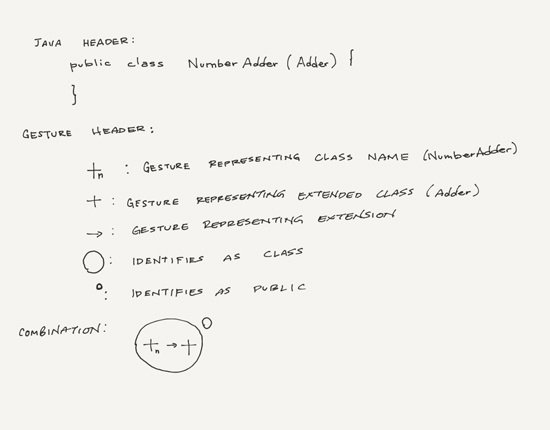 JAVA HEADER:
public class NumberAdder (Adder) {
}
GESTURE HEADER:
+n : GESTURE REPRESENTING CLASS NAME (NumberAdder)
+ : GESTURE REPRESENTING EXTENDED CLASS (Adder)
→ : GESTURE REPRESENTING EXTENSION
○: IDENTIFIES AS CLASS
°: IDENTIFIES AS PUBLIC
COMBINATION:
+n → +